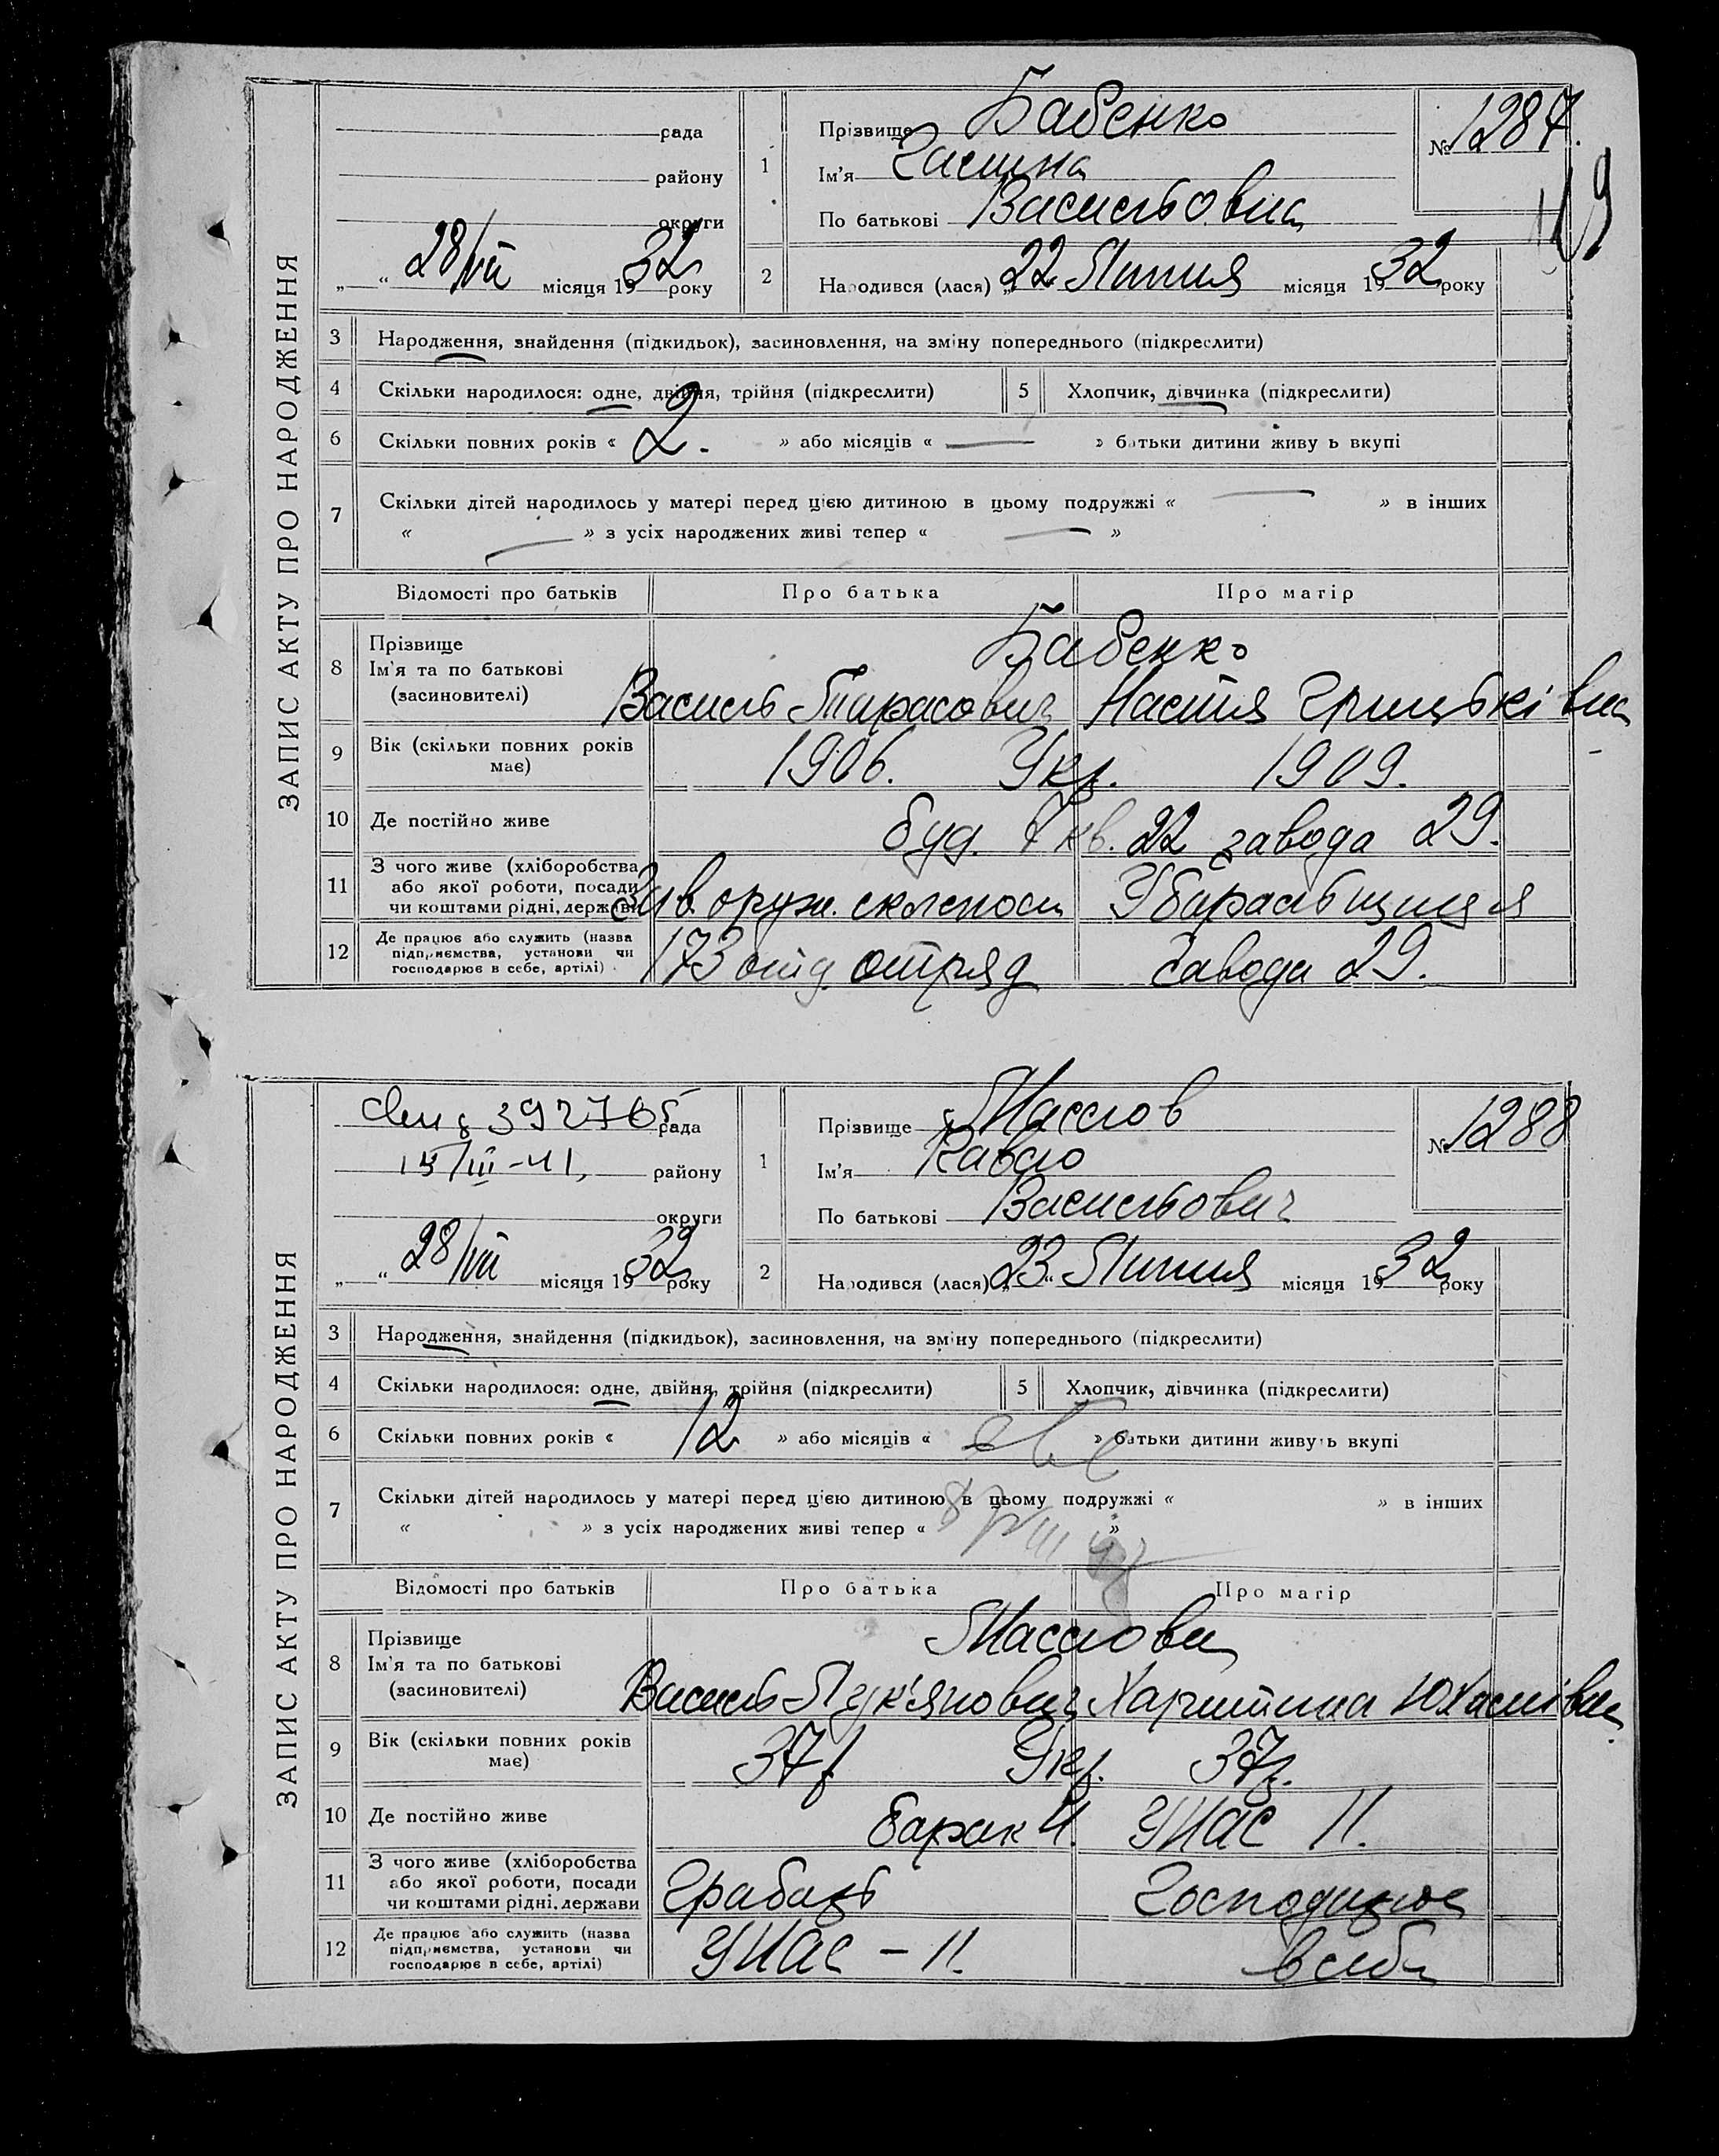 ЗАПИС АКТУ ПРО НАРОДЖЕННЯ
рада
району
округи
28/VII місяця 1932 року
1
Прізвище Бабенко
Ім'я Галина
По батькові Васильовна
№ 1287.
119
2
Народився (лася) „22 Липня місяця 1932 року
3 Народження, знайдення (підкидьок), засиновлення, на зміну попереднього (підкреслити)
4 Скільки народилося: одне, двійня, трійня (підкреслити)
5 Хлопчик, дівчинка (підкреслити)
6 Скільки повних років « 2. » або місяців « — » батьки дитини живуть вкупі
7 Скільки дітей народилось у матері перед цією дитиною в цьому подружжі « — » в інших
« — » з усіх народжених живі тепер « — »
Відомості про батьків Про батька Про матір
8 Прізвище
Ім'я та по батькові
(засиновителі)
Бабенко
Василь Тарасович Настя Грицьківна
9 Вік (скільки повних років має)
1906. Укр. 1909.
10 Де постійно живе
буд. 7 кв. 22 завода 29.
11 З чого живе (хліборобства або якої роботи, посади чи коштами рідні, держави
Зав. оруж. склепом Убиральщиця
12 Де працює або служить (назва підприємства, установи чи господарює в себе, артілі)
173 отд. отряд завода 29.
ЗАПИС АКТУ ПРО НАРОДЖЕННЯ
392765 рада
15/III-41, району
округи
28/VII місяця 1932 року
1
Прізвище Маслов
Ім'я Павло
По батькові Васильович
№ 1288
2
Народився (лася) „23 Липня місяця 1932 року
3 Народження, знайдення (підкидьок), засиновлення, на зміну попереднього (підкреслити)
4 Скільки народилося: одне, двійня, трійня (підкреслити)
5 Хлопчик, дівчинка (підкреслити)
6 Скільки повних років « 12 » або місяців « » батьки дитини живуть вкупі
7 Скільки дітей народилось у матері перед цією дитиною в цьому подружжі « » в інших
« » з усіх народжених живі тепер « »
Відомості про батьків Про батька Про матір
8 Прізвище
Ім'я та по батькові
(засиновителі)
Маслови
Василь Лук'янович Харитина
9 Вік (скільки повних років має)
37р. Укр. 37р.
10 Де постійно живе
барак 4. УНАС 11.
11 З чого живе (хліборобства або якої роботи, посади чи коштами рідні, держави
Грабарь Господарює
12 Де працює або служить (назва підприємства, установи чи господарює в себе, артілі)
УНАС – 11. в себе